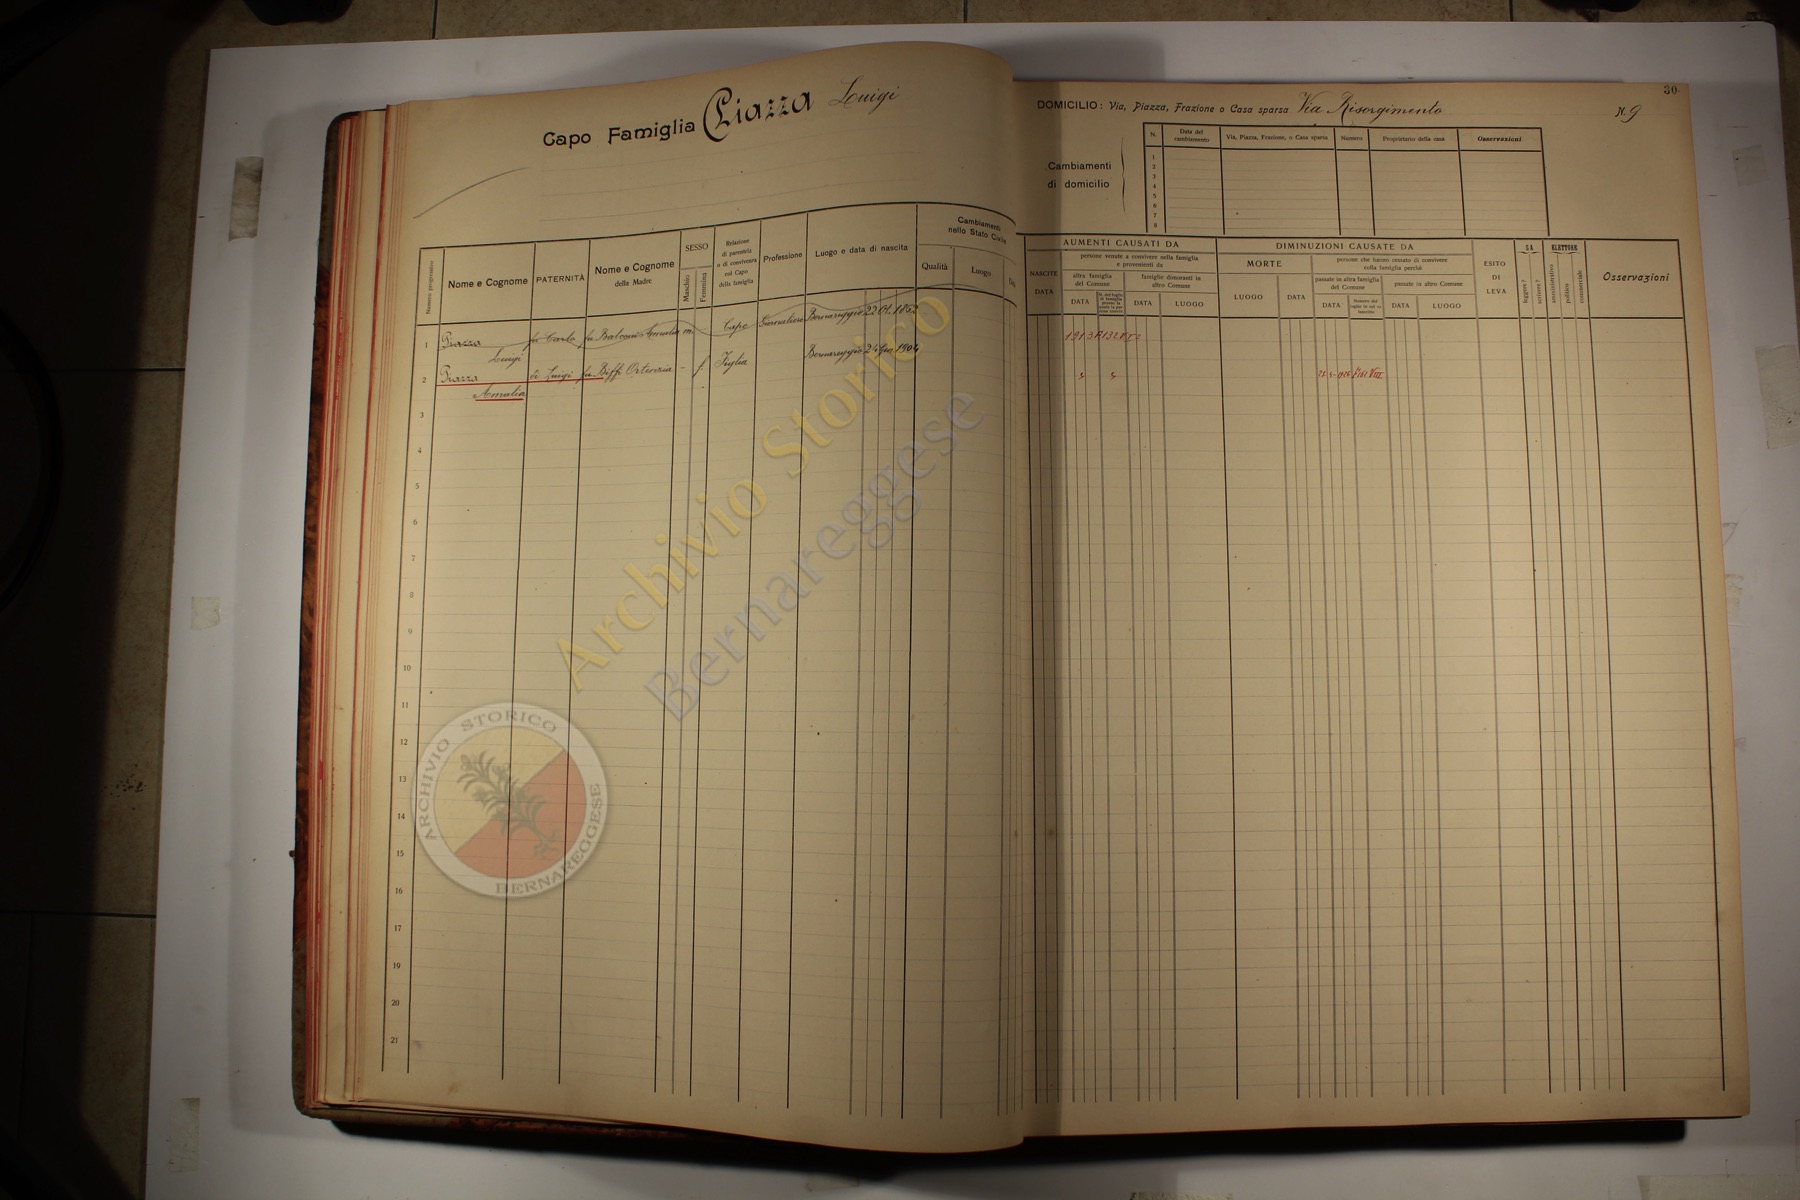 Capo Famiglia Piazza Luigi
30
DOMICILIO: Via, Piazza, Frazione o Casa sparsa Via Risorgimento N. 9
Cambiamenti
di domicilio
N. Data del cambiamento Via, Piazza, Frazione, o Casa sparsa Numero Proprietario della casa Osservazioni
1
2
3
4
5
6
7
8
Numero progressivo
Nome e Cognome
PATERNITÀ
Nome e Cognome
della Madre
SESSO
Maschio
Femmina
Relazione
di parentela
o di convivenza
col Capo
della famiglia
Professione
Luogo e data di nascita
Cambiamenti
nello Stato Civile
Qualità
Luogo
NASCITE
DATA
AUMENTI CAUSATI DA
persone venute a convivere nella famiglia
e provenienti da
altra famiglia
del Comune
DATA
famiglie dimoranti in
altro Comune
DATA
LUOGO
DIMINUZIONI CAUSATE DA
MORTE
LUOGO
DATA
persone che hanno cessato di convivere
colla famiglia perchè
passate in altra famiglia
del Comune
DATA
passate in altro Comune
DATA
LUOGO
ESITO
DI
LEVA
SA
leggere?
scrivere?
ELETTORE
amministrativo
politico
commerciale
Osservazioni
1 Piazza Luigi fu Carlo fu Balconi Amalia m. Capo Bernareggio 22 01. 1862
2 Piazza Amalia di Luigi fu Biffi Ortensia - f. Figlia Bernareggio 24 Gen. 1904
3
4
5
6
7
8
9
10
11
12
13
14
15
16
17
18
19
20
21
Archivio Storico
Bernareggese
ARCHIVIO STORICO
BERNAREGGESE